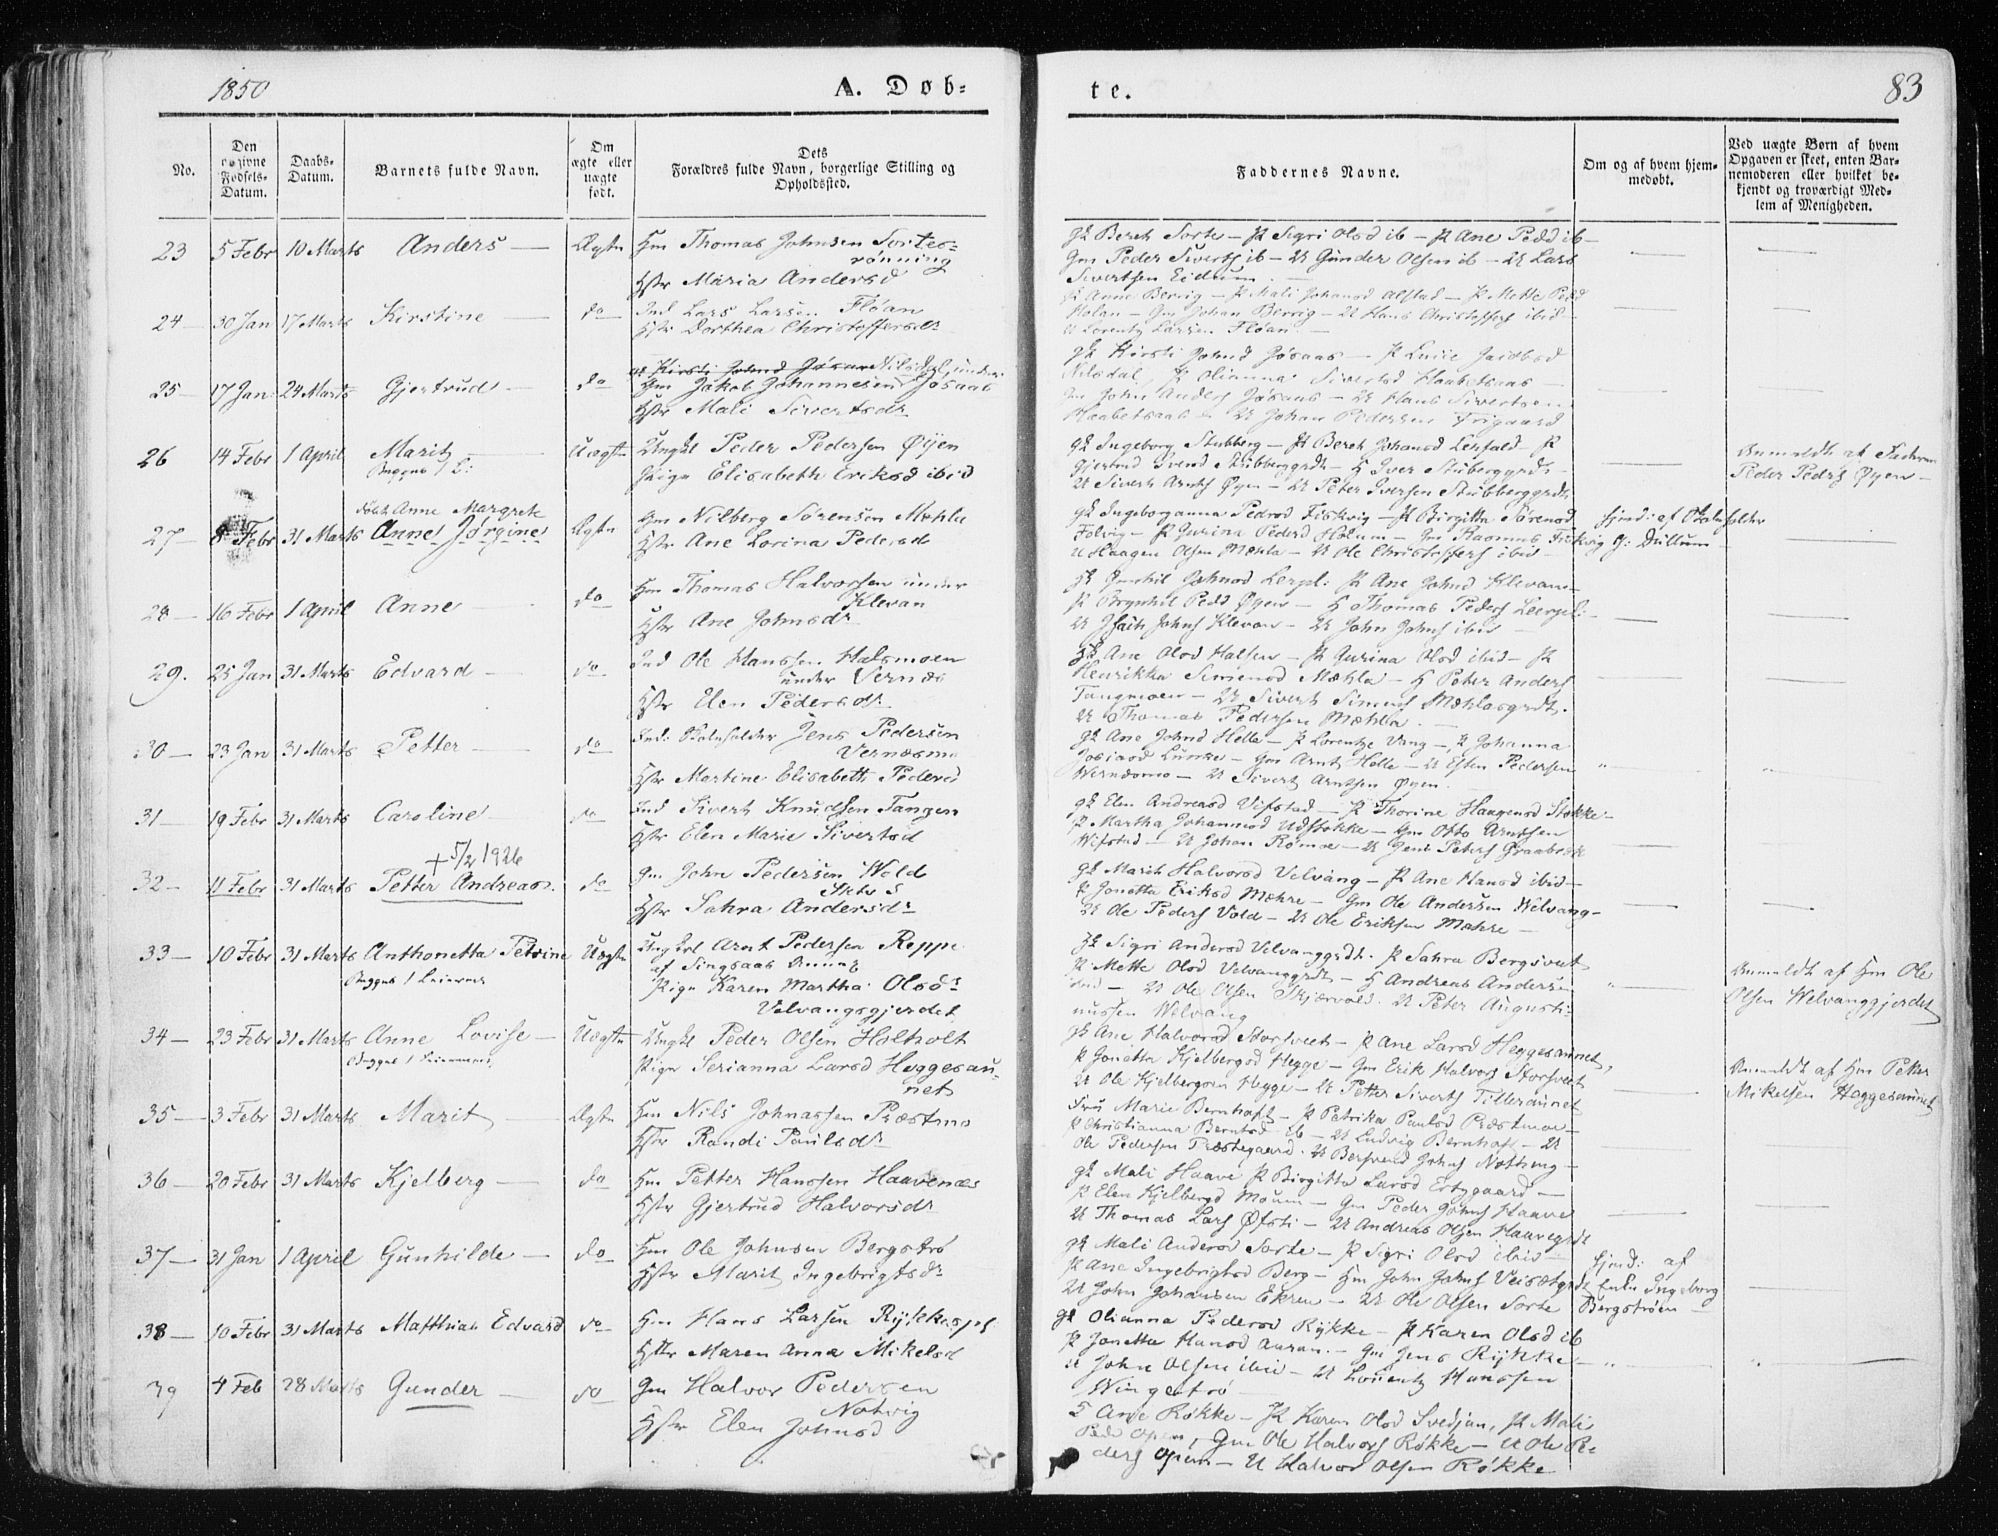 1850
A. Døb-
te.
83
No.
Den
Fødsels-
Datum.
Daabs-
Datum.
Barnets fulde Navn.
Om
ægte eller
uægte
født.
Dets
Forældres fulde Navn, borgerlige Stilling og
Opholdssted.
Faddernes Navne.
Om og af hvem hjem-
medøbt.
Ved uægte Børn af hvem
Opgaven er skeet, enten Bar-
nemoderen eller hvilket be-
kjendt og troværdigt Med-
lem af Menigheden.
23 5 Febr 10 Marts Anders Ægte Hm Thomas Johnsen Sortes-
rønning
Hstr Maria Andersd
Gk Bereth Sorte - P Sigri Olsd ib - P Ane Pedd ib
Gm Peder Siverts ib - U Gunder Olsen ib - U Lars
Sivertsen Eidum
24 30 Jan 17 Marts Kirstine do Ind Lars Larsen Fløan
Hstr Dorthea Christoffersdr
P Anne Berrig - P Mali Johansd Alstad - P Mette Pedd
Holan - Gm Johan Berrig - U Hans Christoffers ibid
U Lorentz Larsen Fløan
25 17 Jan 24 Marts Gjertrud do
Hm Jakob Johannesen Jøsaas
Hstr Mali Sivertsdr
Gk Kirsti Johnd Jøsaas - P
Nilsdal, P Olianna Sivertsd Haabetsaas
Gm John Anders Jøsaas - U Hans Sivertsen
Haabetsaas - U Johan Pedersen
26 14 Febr 1 April Marit Uægte Ungkl Peder Pedersen Øyen
Begges 1 L:
Pige Elisabeth Eriksd ibid
Gk Ingeborg Stubberg - P Bereth Johansd - P
Gjertrud Svend Stubberggrdt - H Iver Stubergrdt
U Sivert Arnts Øyen - U Peter Iversen Stubberggrdt
Anmeldt af Faderen
Peder Peders Øyen
Anne Margrete
27 8 Febr 31 Marts Anne Jørgine Ægte Gm Nilberg Sørensen Mæhla
Hstr Ane Lorina Pedersd
Gk Ingeborganna Pedrsd Fiskvig - P Birgitta Sørensd
Folvig - P Gurina Pedersd Holum - Gm Rasmus Fiskvig
U Haagen Olsen Mæhla - U Ole Christoffers ibid
Hjemd: af Skoleholder
Dullum
28 16 Febr 1 April Anne do Hm Thomas Halvorsen under
Klevan
Hstr Ane Johnsdr
Gk Gunhil Johnsd - P Ane Johnd Klevan
P Brynhil Pedd Øyen - H Thomas Peders
U Johns Klevan - U John Johns ibid
29. 25 Jan 31 Marts Edvard do Ind Ole Hanssen Halsmoen
under Vernæs
Hstr Elen Pedersdr
Gk Ane Olsd Halsen - P Gurina Olsd ibid - P
Henrikka Simensd Mæhla - H Peter Anders
Tangmoen - U Sivert Simens Mæhlasgrdt.
U Thomas Pedersen Mæhla
30 23 Jan 31 Marts Petter do Ind: Skoleholder Jens Pedersen
Vernæsmo
Hstr Martine Elisabeth Pedersd
Gk Ane Johnd Helle - P Lorentze Vang - P Johanna
Josiasd Lunke - Gm Arnt Helle - U Esten Pedersen
Wernæsmo - U Sivert Arntsen Øyen
31 19 Febr 31 Marts Caroline do Ind Sivert Knudsen Tangen
Hstr Elen Marie Sivertsd
Gk Elen Andreasd Vifstad - P Thorine Haagensd Stokke
P Martha Johannesd Udstokke - Gm Otto Arntsen
Wifstad - U Johan Rømoe - U Jens Peters Graabræk
+ 5/2 1926
32 11 Febr 31 Marts Petter Andreas do Gm John Pedersen Wold
Hstr Sahra Andersdr
Gk Marit Halvorsd Velvang - P Ane Hansd ibid
P Jonetta Eriksd Mæhre - Gm Ole Andersen Welvang
U Ole Peders Vold - U Ole Eriksen Mæhre
33 10 Febr 31 Marts Anthonetta Petrine Uægte Ungkl Arnt Pedersen Reppe
Begges 1 Leierm
af Singsaas Annex
Pige Karen Martha Olsdr
Velvangsgjerdet
Gk Sigri Andersd Velvanggrdt. P Sahra Bergsveet
P Mette Olsd Velvanggrdt - H Andreas Andersen
ibid - U Ole Olsen Skjærvold. U Peter Augusti-
nussen Welvang
Anmeldt af Hm Ole
Olsen Welvanggjerdet
34 23 Febr 31 Marts Anne Lovise Uægte Ungkl Peder Olsen Holtholt
Begges 1 Leiermaal
Pige Serianna Larsd Heggesau-
net
Gk Ane Halvorsd Storsveet - P Ane Larsd Heggesaunet
P Jonetta Kjelbergsd Hegge - Gm Erik Halvors Storsveet
U Ole Kjelbergsen Hegge - U Petter Siverts Tilleraunet
Anmeldt af Hm Peter
Mikelsen Heggesaunet
35 3 Febr 31 Marts Marit Ægte Hm Nils Johnassen Præstmo
Hstr Randi Paulsdr
Fru Marie Bernhoft - P Petrika Paulsd Præstmoe
P Christianna Berntsd ib - U Ludvig Bernhoft - U
Ole Pedersen Præstegaard. U Bersvend Johns Nøtting
36 20 Febr 31 Marts Kjelberg do Hm Petter Hanssen Haavenæs
Hstr Gjertrud Halvorsdr
Gk Mali Haave P Birgitta Larsd Ertzgaard
P Elen Kjelbergd Moum - Gm Peder Johns Haave
U Thomas Lars Øfsti - U Andreas Olsen Haavegrdt
37 31 Jan 1 April Gunhilde do Hm Ole Johnsen Bergstrø
Hstr Marit Ingebrigtsdr
Gk Mali Andersd Sorte - P Sigri Olsd ibid
P Ane Ingebrigtsd Berg - Hm John Johns Veisætgrdt
U John Johansen Ekren - U Ole Olsen Sorte
Hjemd: af
Enke Ingeborg
Bergstrøm
38 10 Febr 31 Marts Matthias Edvard do Hm Hans Larsen
Hstr Maren Anna Mikelsd
Gk Olianna Pedersd Rykke - P Karen Olsd ib
P Jonetta Hansd Auran - Gm Jens Rykke
U John Olsen ibid - U Lorentz Hanssen
Wingestrø
39 4 Feb 28 Marts Gunder do Gm Halvor Pedersen
Notvig
Hstr Elen Johnsd
Ane Røkke - P Karen Olsd Svedjan, P Mali
Pedd Opem, Gm Ole Halvors Røkke - U Ole Pe-
ders Opem - U Halvor Olsen Røkke